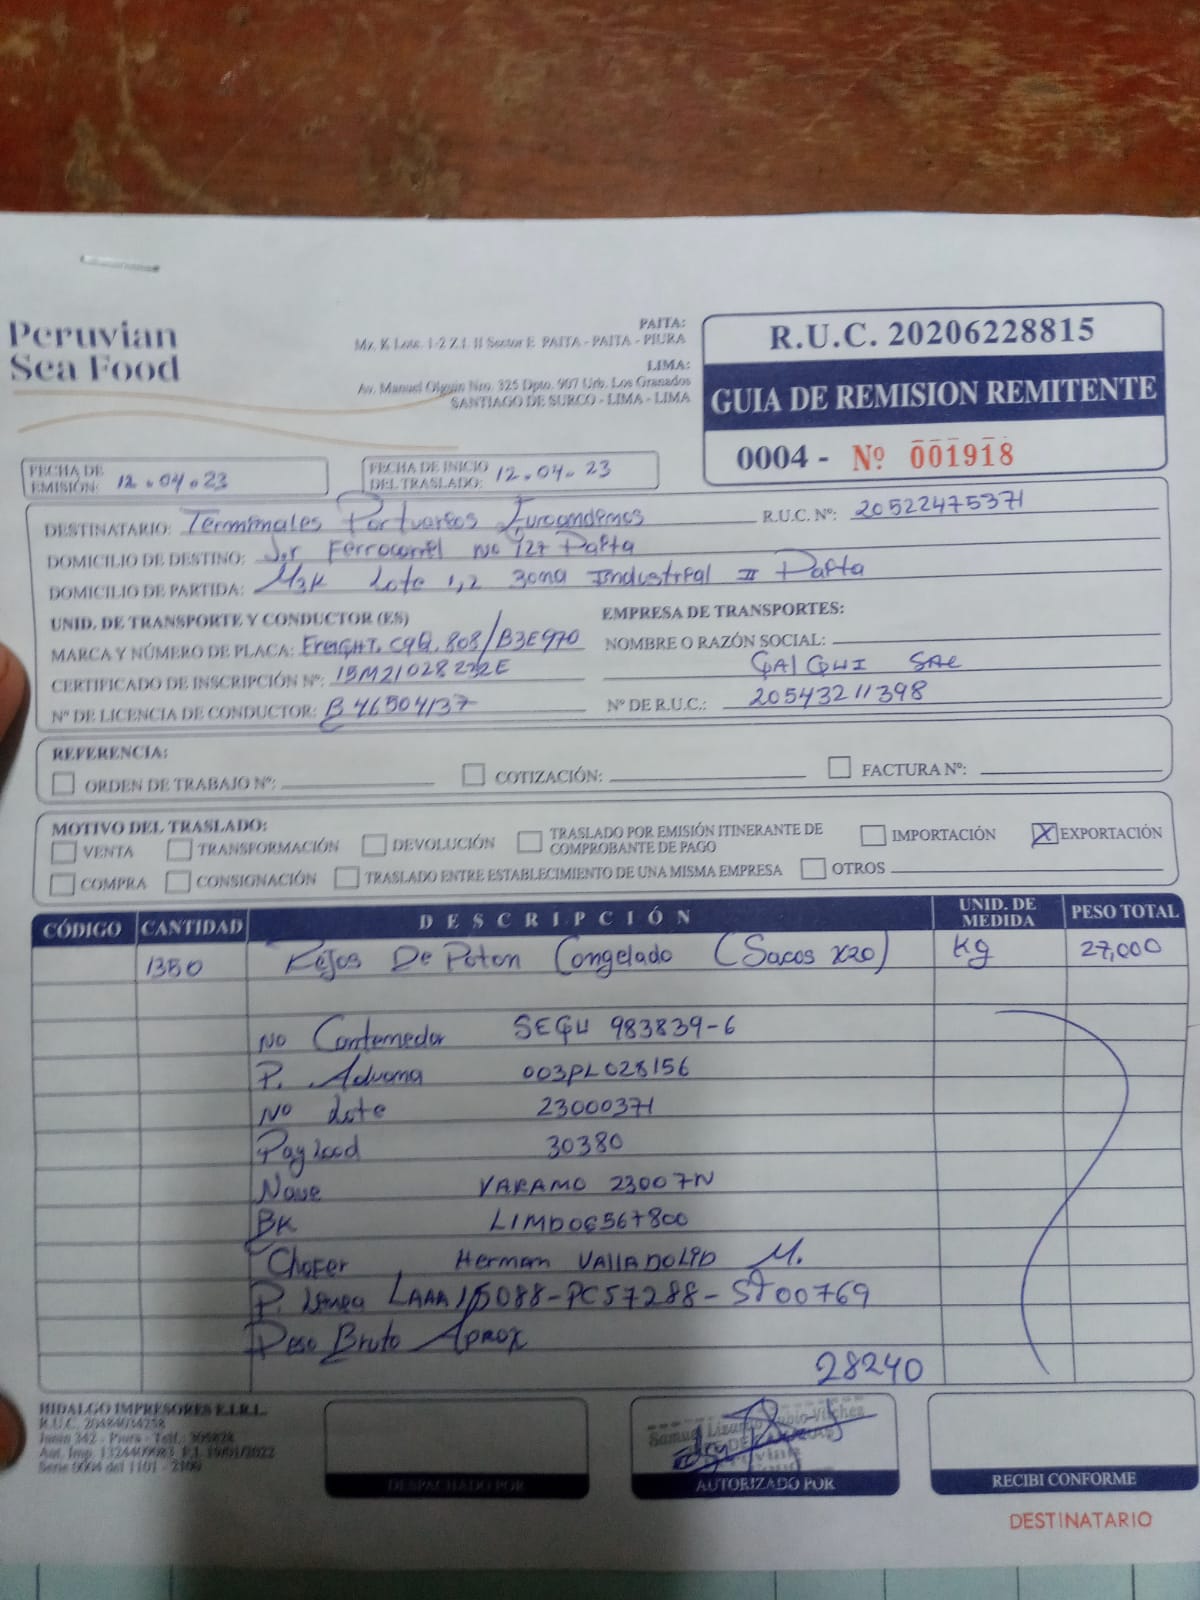 Peruvian
Sea Food
PAITA:
Mz. K Lote. 1-2 Z.I. II Sector E PAITA - PAITA - PIURA
LIMA:
Av. Manuel Olguin Nro. 325 Dpto. 907 Urb. Los Granados
SANTIAGO DE SURCO - LIMA - LIMA
R.U.C. 20206228815
GUIA DE REMISION REMITENTE
0004 - Nº 001918
FECHA DE EMISIÓN: 12.04.23
FECHA DE INICIO DEL TRASLADO: 12.04.23
DESTINATARIO: Terminales Portuareos Euroandemos R.U.C. Nº: 20522475371
DOMICILIO DE DESTINO: Jr Ferrocarrel No 127 Paita
DOMICILIO DE PARTIDA: Mzk Lote 1,2 Zona Industrial II Paita
UNID. DE TRANSPORTE Y CONDUCTOR (ES)
MARCA Y NÚMERO DE PLACA: FreIGHT. C9Q. 808/B3E970
CERTIFICADO DE INSCRIPCIÓN Nº: 15M21028232E
Nº DE LICENCIA DE CONDUCTOR: B 46504137
EMPRESA DE TRANSPORTES:
NOMBRE O RAZÓN SOCIAL:
SAC
Nº DE R.U.C.: 20543211398
REFERENCIA:
ORDEN DE TRABAJO Nº: COTIZACIÓN: FACTURA Nº:
MOTIVO DEL TRASLADO:
VENTA TRANSFORMACIÓN DEVOLUCIÓN TRASLADO POR EMISIÓN ITINERANTE DE COMPROBANTE DE PAGO IMPORTACIÓN X EXPORTACIÓN
COMPRA CONSIGNACIÓN TRASLADO ENTRE ESTABLECIMIENTO DE UNA MISMA EMPRESA OTROS
CÓDIGO CANTIDAD DESCRIPCIÓN UNID. DE MEDIDA PESO TOTAL
1350 Rejos De Poton Congelado (Sacos x20) Kg 27,000
No Contenedor SEGU 983839-6
P. Aduana 003PL028156
No Lote 23000371
Payload 30380
Nave VARAMO 23007N
BK LIMD06567800
Chofer Herman VALLADOLID M.
P. Linea LAAA15088-PC57288-ST00769
Peso Bruto Aprox
28240
HIDALGO IMPRESORES E.I.R.L.
R.U.C. 20484034258
Junin 342 - Piura - Telf.: 305828
Aut. Imp. 1324409083 F.I. 19/01/2022
Serie 0004 del 1101 - 2100
DESPACHADO POR
Samuel Lizardo Rubio Vilchez
AUTORIZADO POR
RECIBI CONFORME
DESTINATARIO